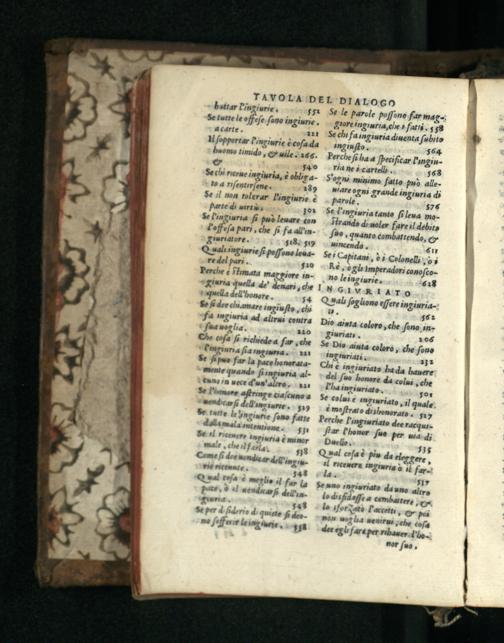 TAVOLA DEL DIALOGO
buttar l'ingiurie. 552
Se tutte le offese sono ingiurie.
a carte. 221
Il sopportar l'ingiurie è cosa da
huomo timido, & vile. 266.
& 540
Se chi riceue ingiuria, è obliga-
to a risentirsene. 289
Se il non tolerar l'ingiurie è
parte di uirtù. 302
Se l'ingiuria si può leuare con
l'offesa pari, che si fa all'in-
giuriatore. 518. 519
Quali ingiurie si possono leua-
re del pari. 520
Perche è stimata maggiore in-
giuria quella de' denari, che
quella dell'honore. 54
Se si dee chiamare ingiusto, chi
fa ingiuria ad altrui contra
sua uoglia. 220
Che cosa si richiede a far, che
l'ingiuria sia ingiuria. 221
Se si può far la pace honorata-
mente quando si ingiuria al-
cuno in uece d'un'altro. 221
Se l'honore astringe ciascuno a
uendicarsi dell'ingiurie. 529
Se tutte le ingiurie sono fatte
dalla mala intentione. 531
Se il riceuere ingiuria è minor
male, che il farla. 538
Come si dee uendicar dell'ingiu-
rie riceuute. 548
Qual cosa è meglio il far la
pace, ò il uendicarsi dell'in-
giuria. 548
Se per desiderio di quiete si deo-
no sofferir le ingiurie. 558
Se le parole possono far mag-
giore ingiuria, che i fatti. 558
Se chi fa ingiuria diuenta subito
ingiusto. 564
Perche si ha a specificar l'ingiu-
ria ne i cartelli. 568
S'ogni minimo fatto può alle-
uiare ogni grande ingiuria di
parole. 576
Se l'ingiuria tanto si leua mo-
strando di uoler fare il debito
suo, quanto combattendo, &
uincendo. 611
Se i Capitani, ò i Colonelli, ò i
Rè, ò gl'Imperadori conosco-
no le ingiurie. 628
INGIURIATO
Quali sogliono essere ingiuria-
ti. 562
Dio aiuta coloro, che sono in-
giuriati. 206
Se Dio aiuta coloro, che sono
ingiuriati. 232
Chi è ingiuriato ha da hauere
del suo honore da colui, che
l'ha ingiuriato. 501
Se colui è ingiuriato, il quale
è mostrato dishonorato. 527
Perche l'ingiuriato dee racqui-
star l'honor suo per uia di
Duello. 535
Qual cosa è piu da eleggere,
il riceuere ingiuria ò il far-
la. 537
Se uno ingiuriato da uno altro
lo disfidasse a combattere, &
lo sforzato l'accetti, & poi
non uoglia uenirui, che cosa
dee egli fare per rihauer l'ho-
nor suo.